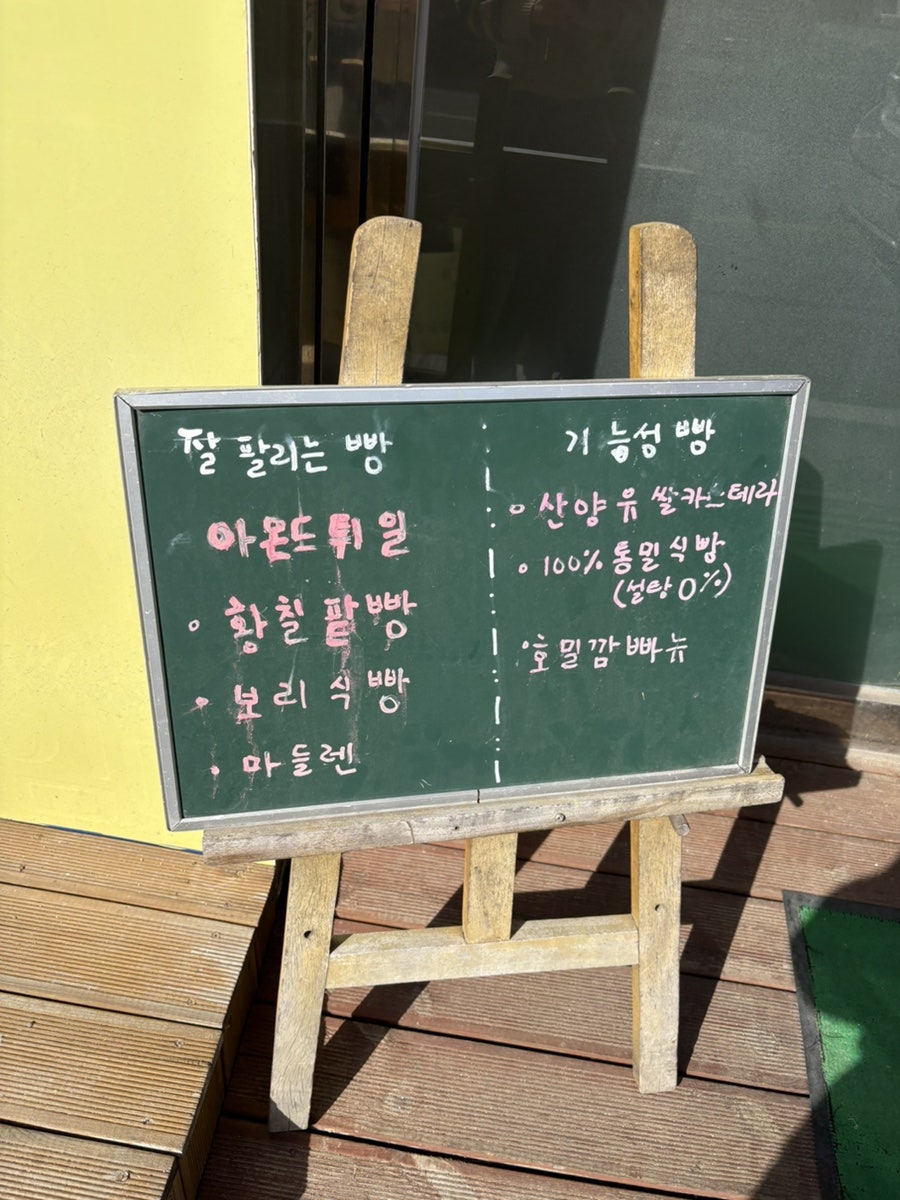 잘 팔리는 빵
아몬드 튀일
• 황칠 팥빵
• 보리 식빵
• 마들렌
기능성 빵
• 산양유 쌀카스테라
• 100% 통밀식빵
(설탕 0%)
• 호밀깜빠뉴